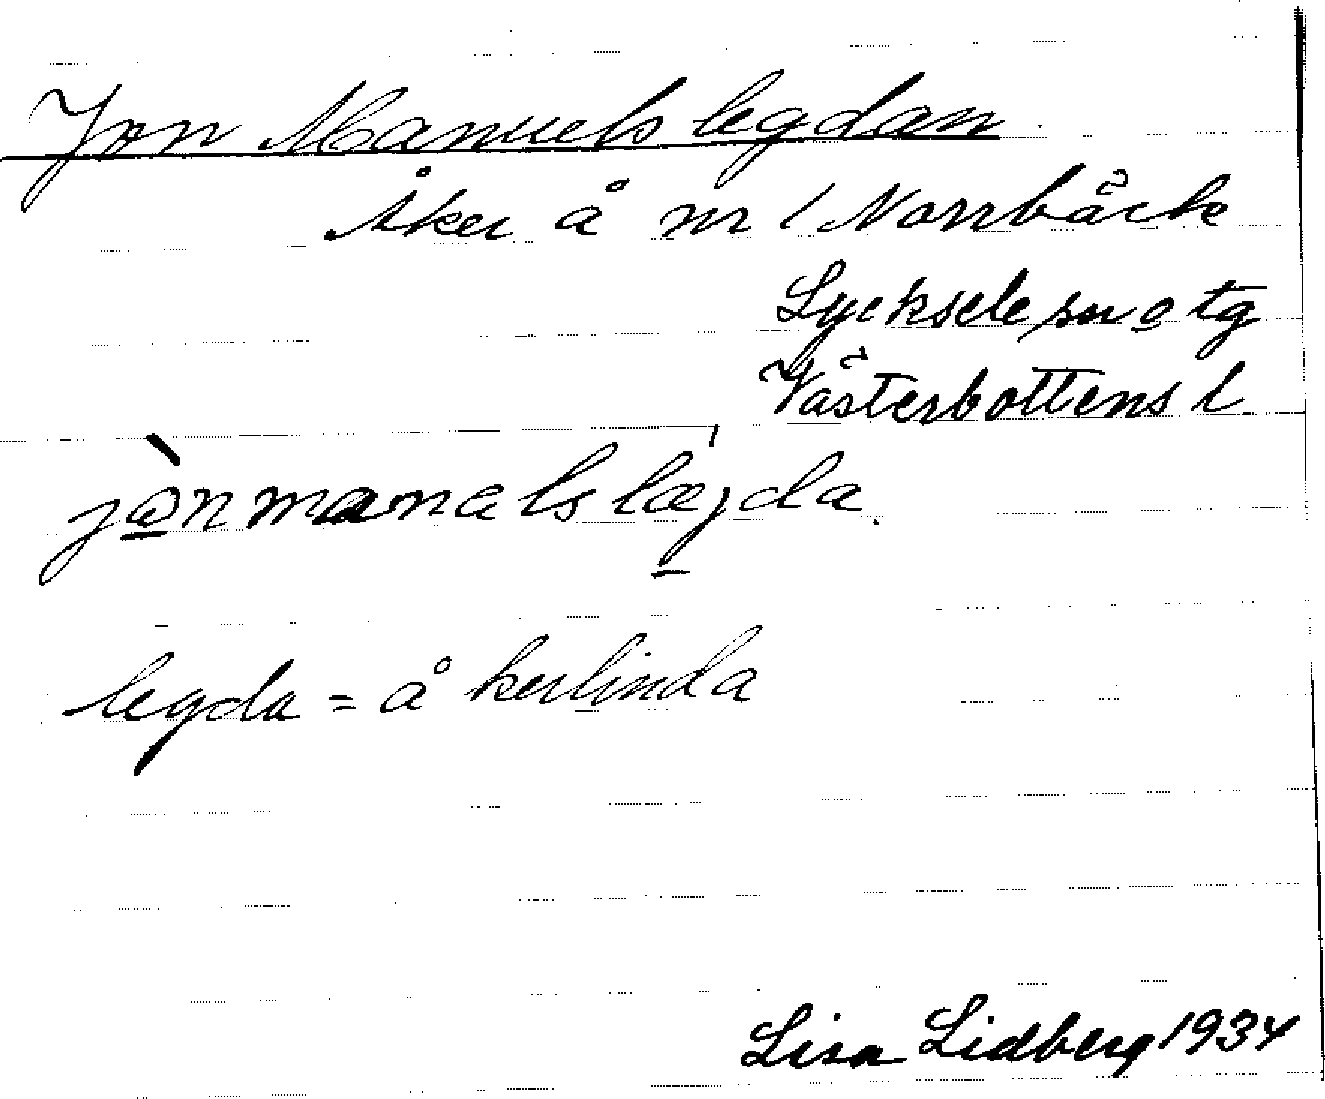 Jon Manuelslegdan
Åker å nr 1 Norrbäck
Lycksele sn o tg
Västerbottens l
jònmanalslæjda.
legda = åkerlinda
Lisa Lidberg 1934